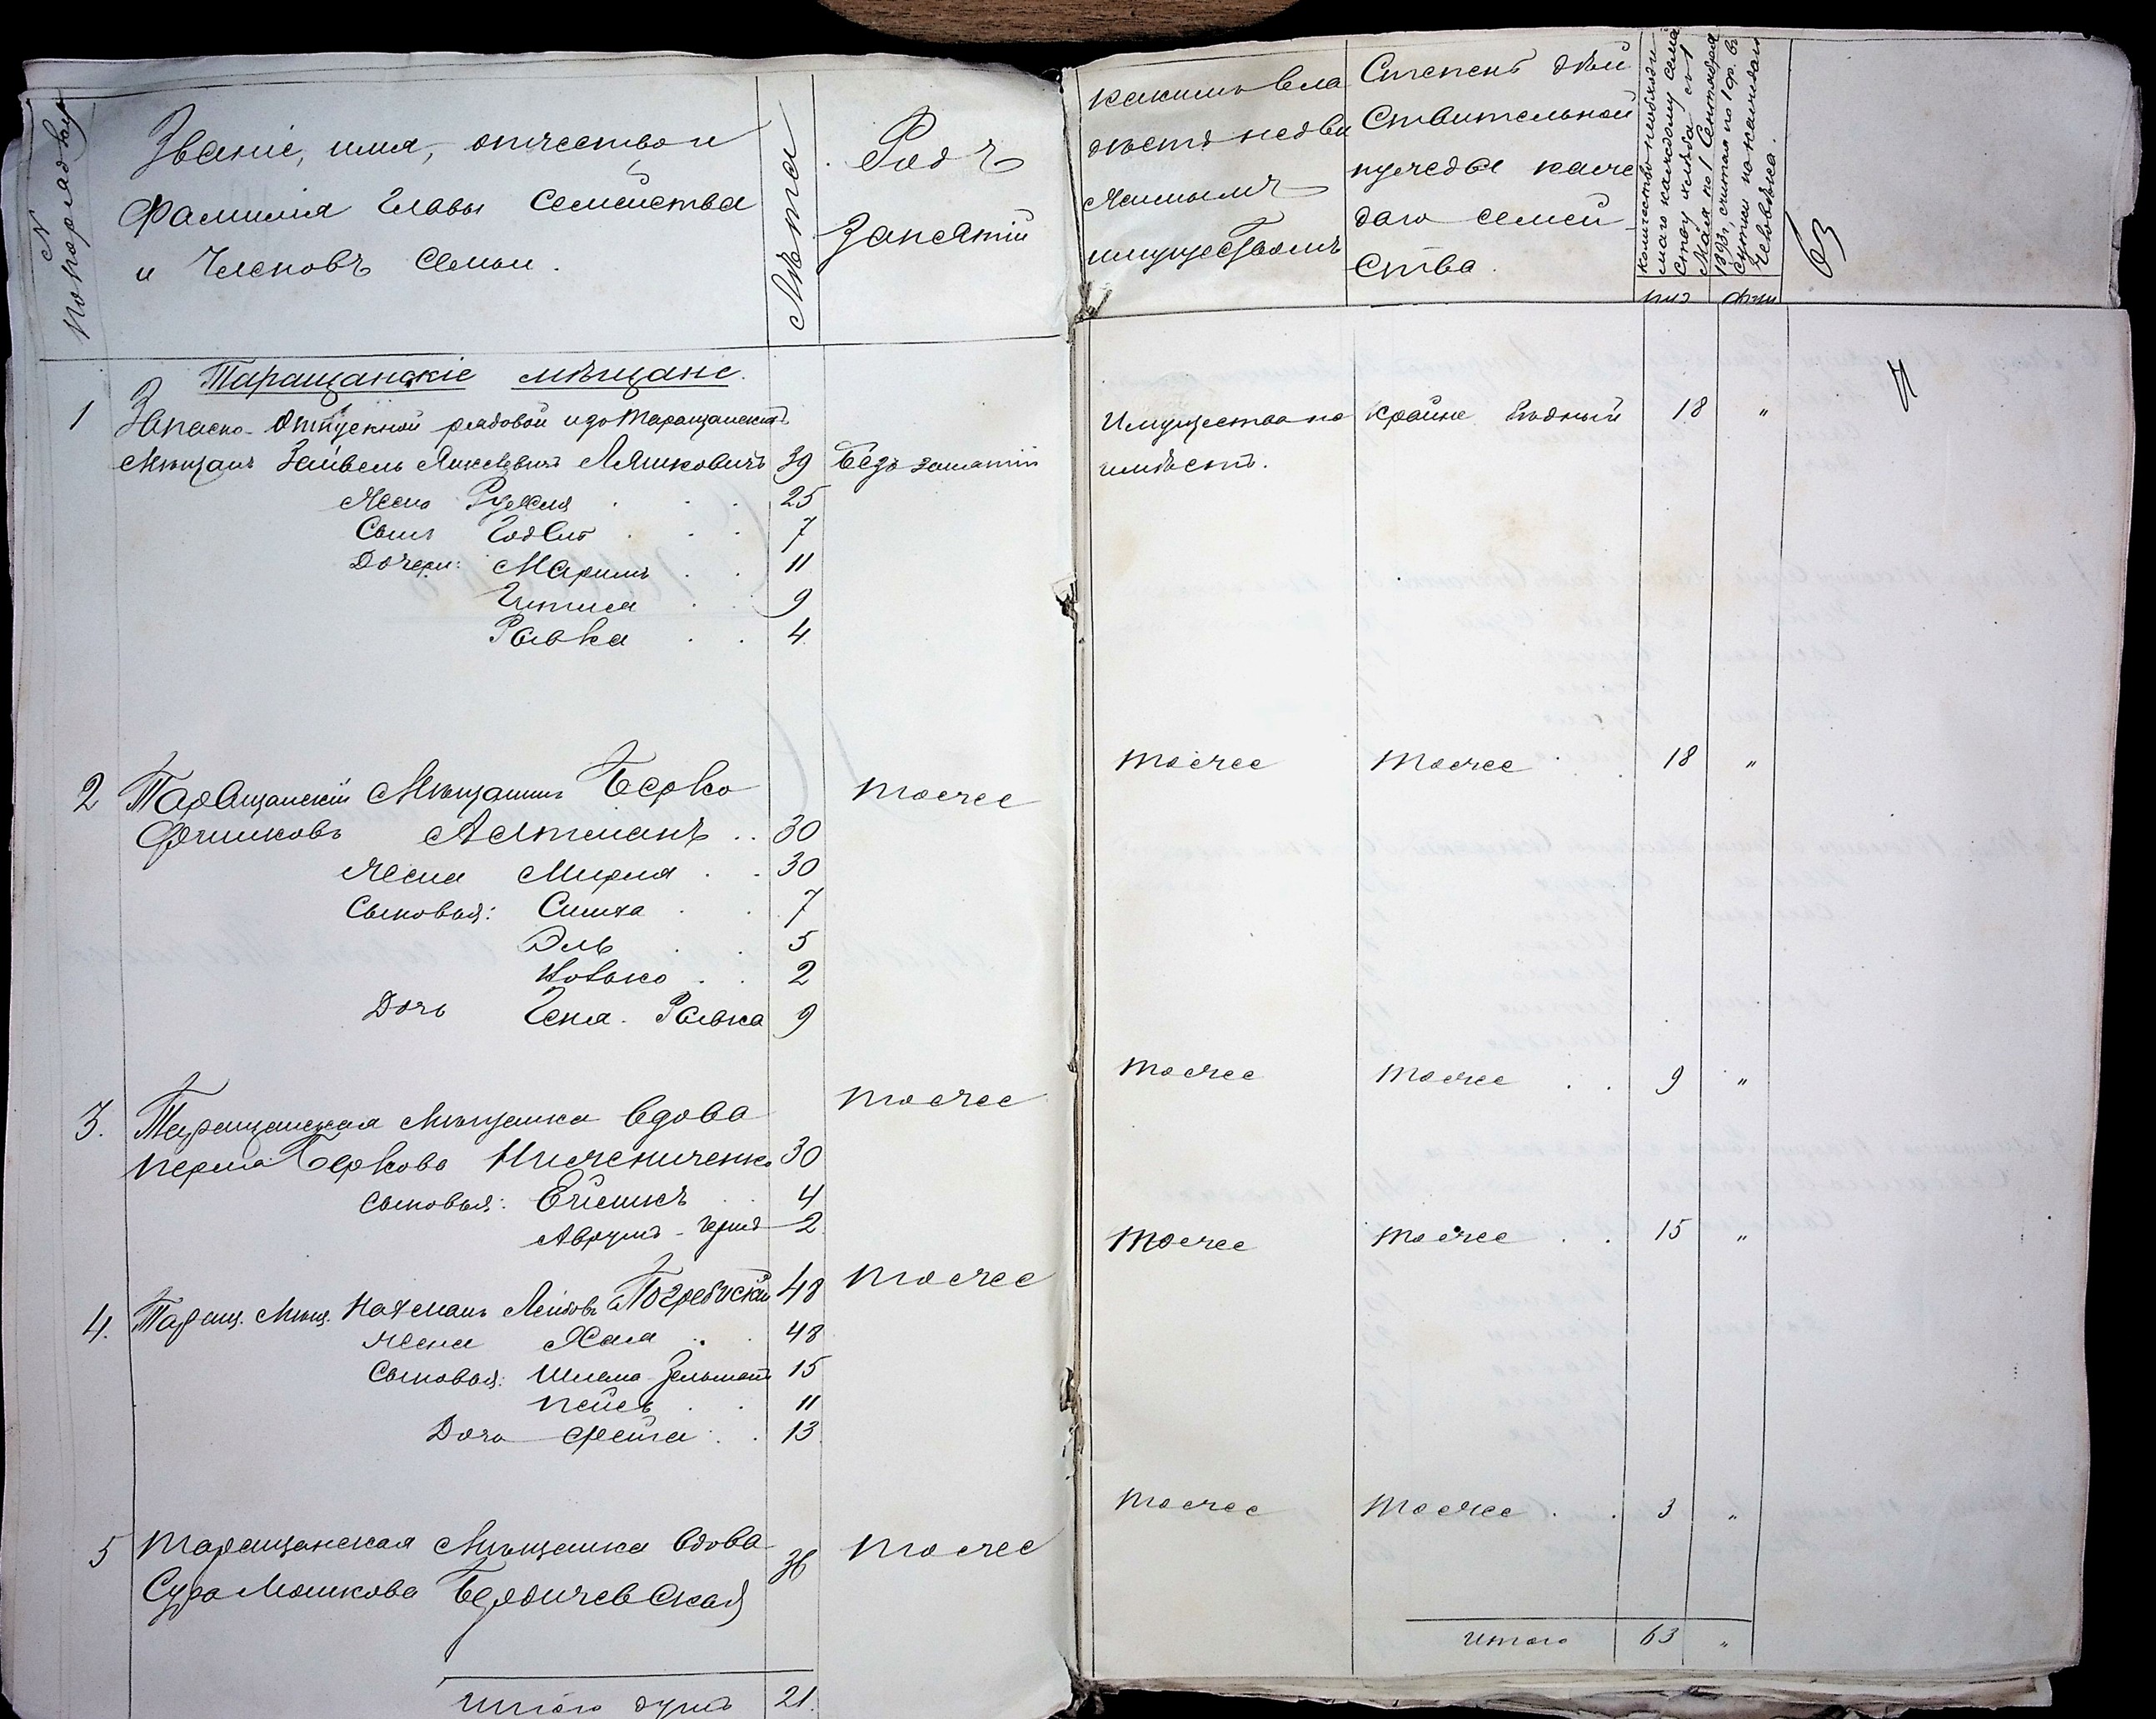 № по порядку
Званіе, имя, отчество и
Фамилія Главы Семейства
и Членовъ Семьи.
Лѣта
Родъ
Занятій
Какимъ вла
дѣетъ недви
жимымъ
имуществомъ
Степень дѣй
ствительной
нужды каж
даго семей
ства.
Количество необходи
маго каждому семей
ству хлѣба съ 1
Мая по 1 Сентября
1893 г, считая по 1 ф. въ
сутки на каждаго
человѣка.
пуд
фун
63
Таращанскіе мѣщане.
1 Запасно-Отпускной рядовой изъ Таращанскихъ
Мѣщанъ Зайвель Янкелевичъ Ляшковичъ 39 Безъ занятій
Имущества не Крайне бѣдный 18 "
имѣетъ.
Жена Рухля 25
Сынъ 7
Дочери: Маримъ 11
Гитля 9
Ривка 4
2 Таращанскій Мѣщанинъ Берко тоже тоже тоже 18 "
Альтманъ 30
Жена Мирля 30
Сыновья: Симха 7
Эль 5
2
Дочь Ривка 9
3. Таращанская Мѣщанка вдова тоже тоже тоже 9 "
Перля Беркова 30
Сыновья: 4
Аврумъ- 2
4. Таращ. Мѣщ. Нахманъ Лейбовъ Погребиский 48 тоже тоже тоже 15 "
Жена Хая 48
Сыновья: Шлема 15
Пейсъ 11
Дочь Фейга 13
5 Таращанская Мѣщанка вдова тоже тоже тоже 3 "
Сура Мошкова Бердичевская 36
Итого душъ 21.
Итого 63 "